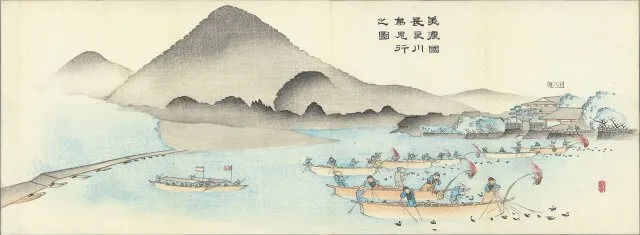 美濃國
長良川
烏鬼行
之圖